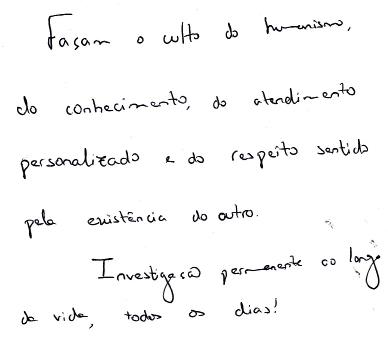 Façam o culto do humanismo,
do conhecimento, do atendimento
personalizado e do respeito sentido
pela existência do outro.
Investigação permanente ao longo
da vida, todos os dias!